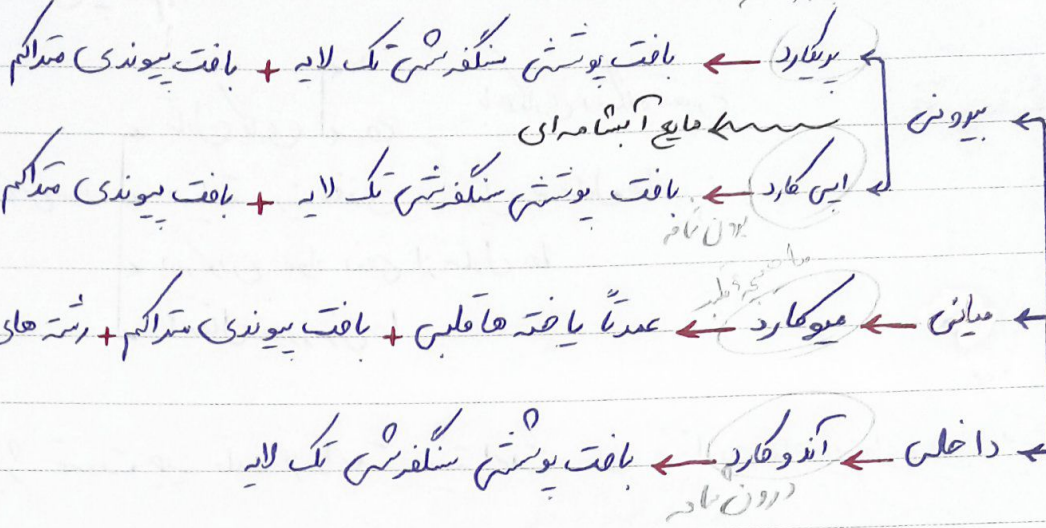 پریکارد ← بافت پوششی سنگفرشی تک لایه + بافت پیوندی متراکم
بیرونی
مایع آبشامه ای
اپی کارد ← بافت پوششی سنگفرشی تک لایه + بافت پیوندی متراکم
برون شامه
ماهیچه قلب
میانی ← میوکارد ← عمدتاً یاخته ها قلبی + بافت پیوندی متراکم + رشته های
داخلی ← آندوکارد ← بافت پوششی سنگفرشی تک لایه
درون شامه